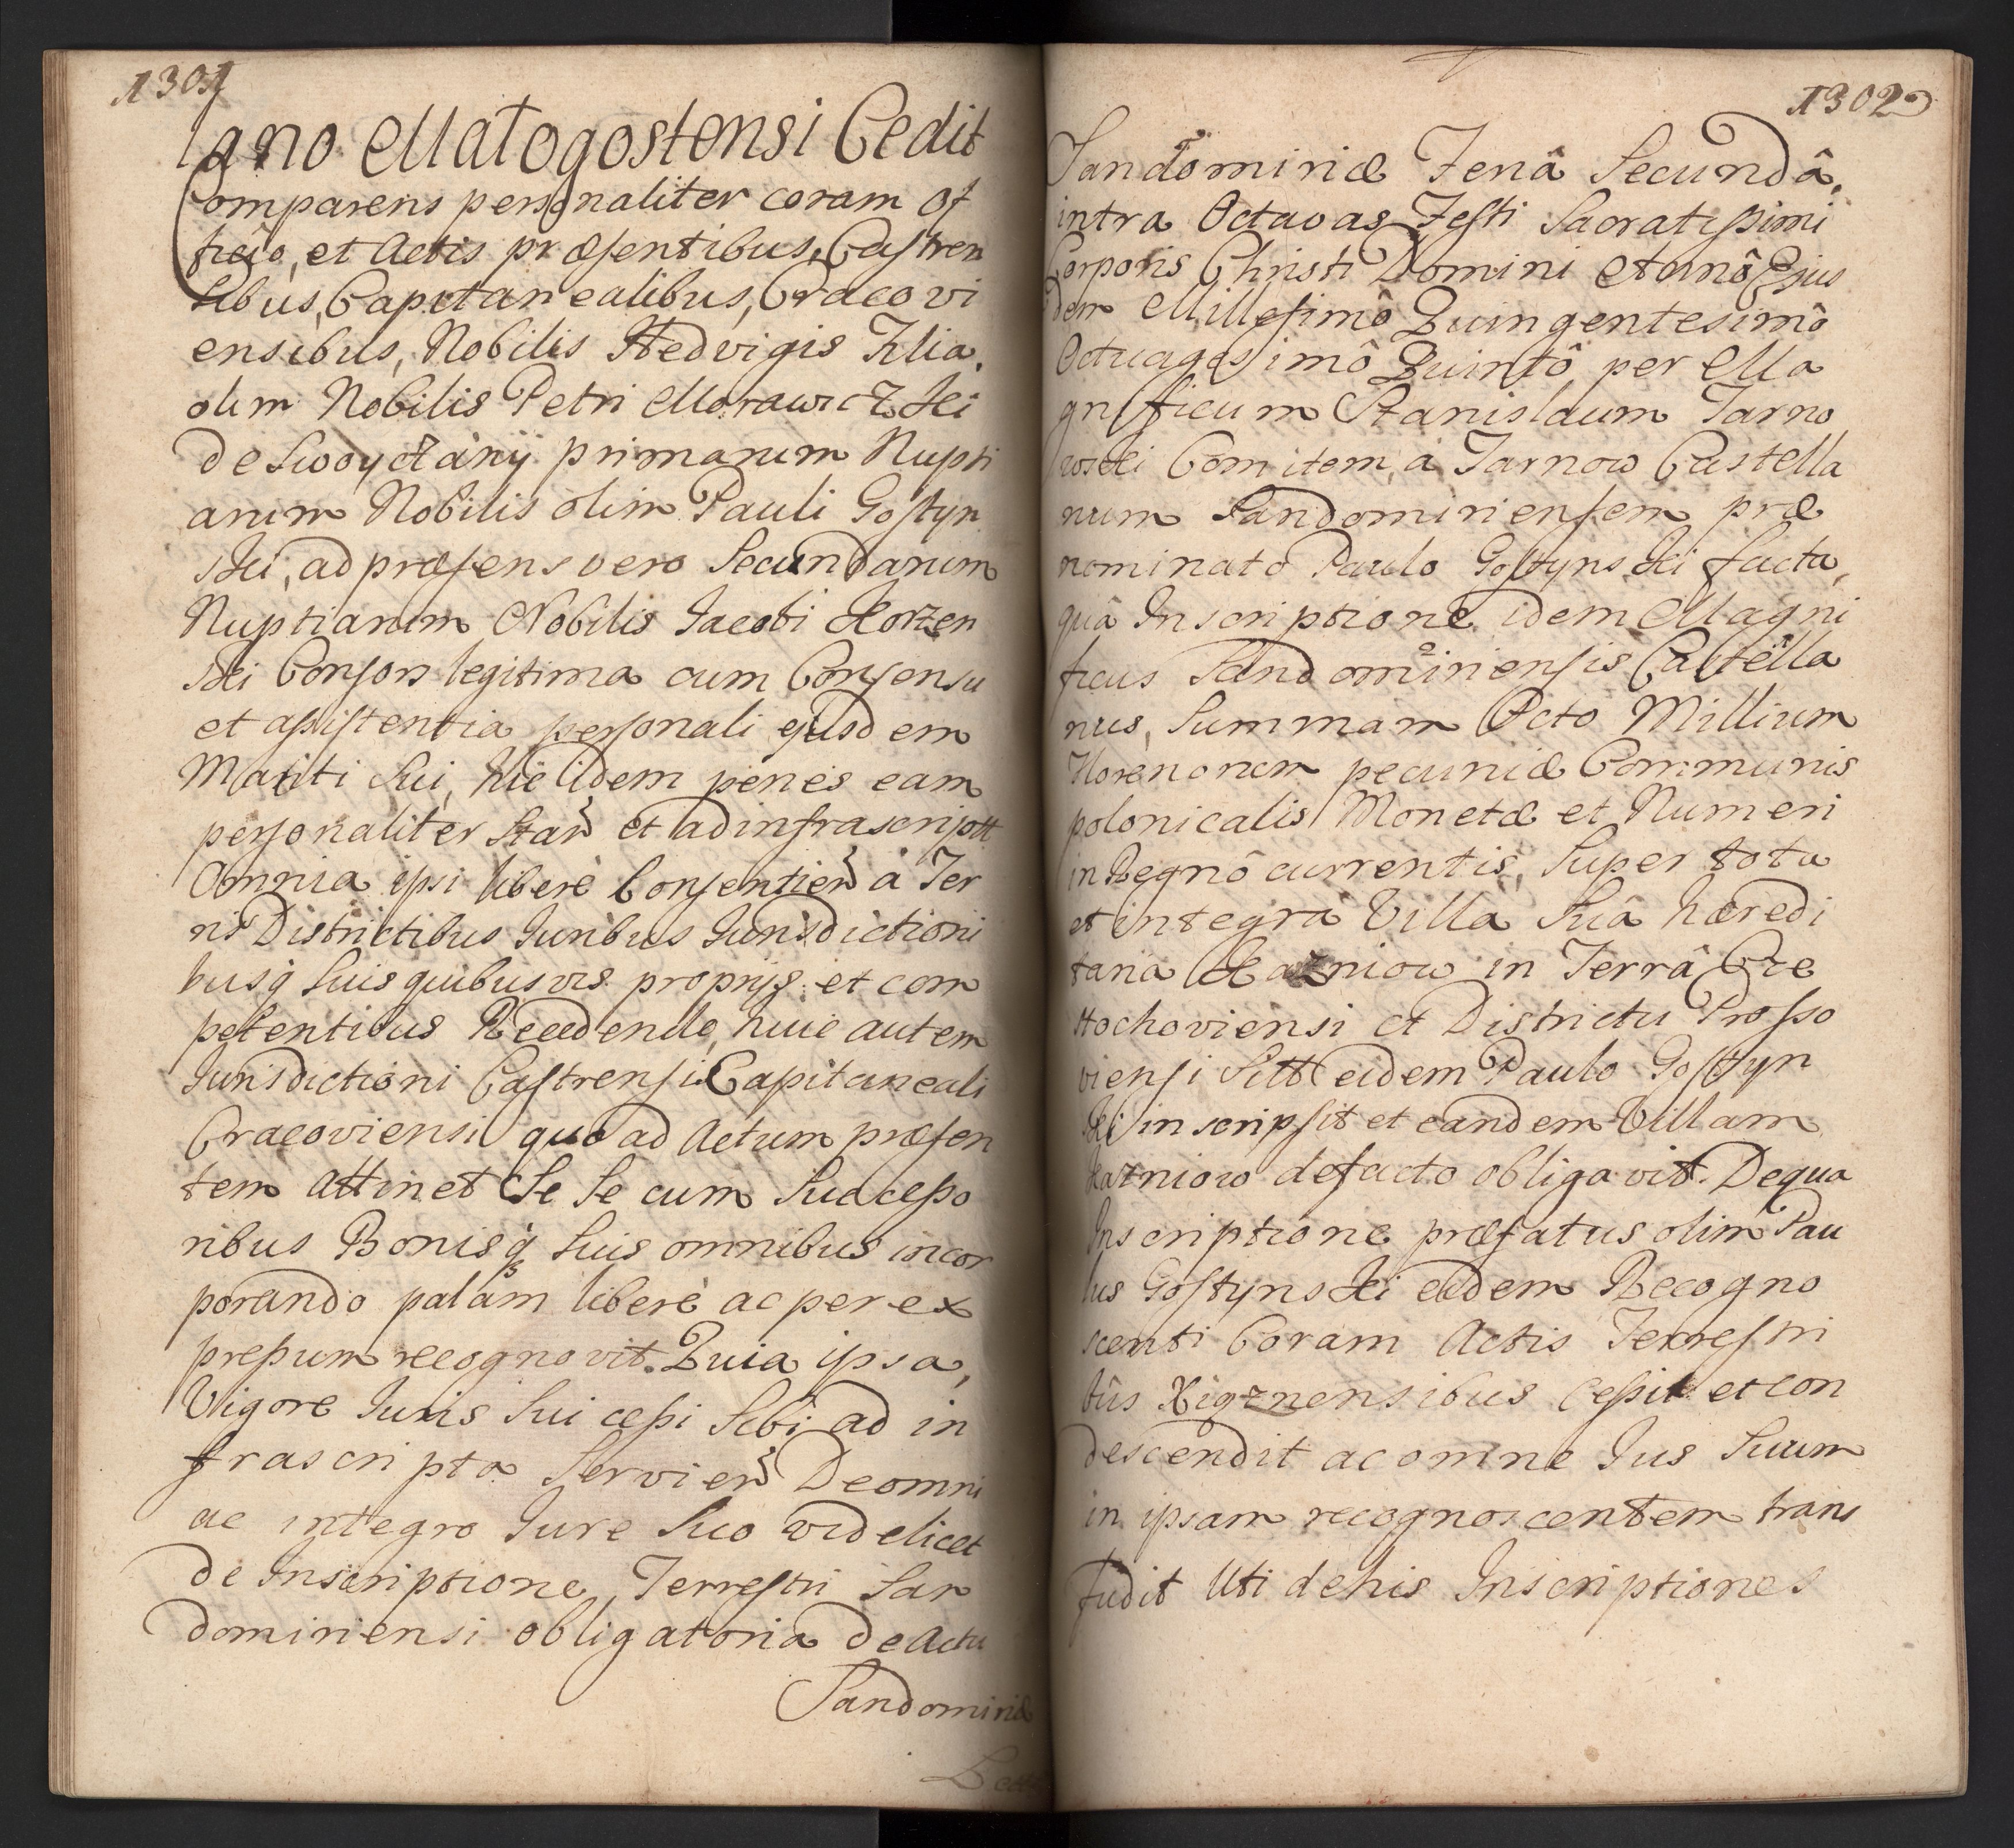 1301
lano Małogostensi Cedit
Comparens personaliter coram Of
ficio, et Actis præsentibus, Castren
sibus, Capitanealibus, Cracovi
ensibus, Nobilis Hedvigis Filia
olim Nobilis Petri Morawicz ki
de primarum Nupti
arum Nobilis olim Pauli Gostyn
ski, ad præsens vero Secundarum
Nuptiarum Nobilis Jacobi Korzen
ski Consors legitima cum Consensu
et assistentia personali ejusdem
Mariti Sui, hic ibidem penes eam
personaliter Stan et ad infrascriptt
Omnia ipsi liberè Consentien à Ter
ris Districtibus Juribus Jurisdictioni
busq́ Suis quibusvis proprijs et com
petentibus Recedendo, huic autem
Jurisdictioni Castrensi Capitaneali
Cracoviensi quo ad Actum præsen
tem attinet Se Se cum Successo
ribus Bonisq́ Suis omnibus incor
porando palam liberè ac per ex
pressum recognovit. Quia ipsa,
Vigore Juris Sui cessi Sibi ad in
frascripta Servien De omni
ac integro Jure Suo videlicet
de Inscriptione, Terrestri San
domiriensi obligatoria de Actu
Sandomiriæ
1302
Sandomiriæ Feriâ Secundâ,
intra Octavas Festi Sacratissimi
Corporis Christi Domini Annô Ejus
dem Millesimô Quingentesimô
Octuagesimô Quintô, per Ma
gnificum Stanislaum Tarno
wski Comitem, à Tarnow Castella
num Sandomiriensem præ
nominato Paulo Gostynski facta,
quâ Inscriptione idem Magni
ficus Sandomiriensis Castella
nus, Summam Octo Millium
Florenorum pecuniæ Communis
polonicalis Monetæ et Numeri
in Regnô currentis, Super tota
et integrâ Villa Suâ hæredi
taria Kazniow in Terrâ Cze
stochoviensi et Districtu Prosso
viensi Sitt eidem Paulo Gostyn
ski inscripsit et eandem Villam
Kazniow defacto obligavit. De qua
Inscriptione præfatus olim Pau
lus Gostynski eidem Recogno
scenti Coram Actis Terrestri
bus Xigznensibus Cessit et con
descendit ac omne Jus Suum
in ipsam recognoscentem trans
fudit Uti de his Inscriptiones